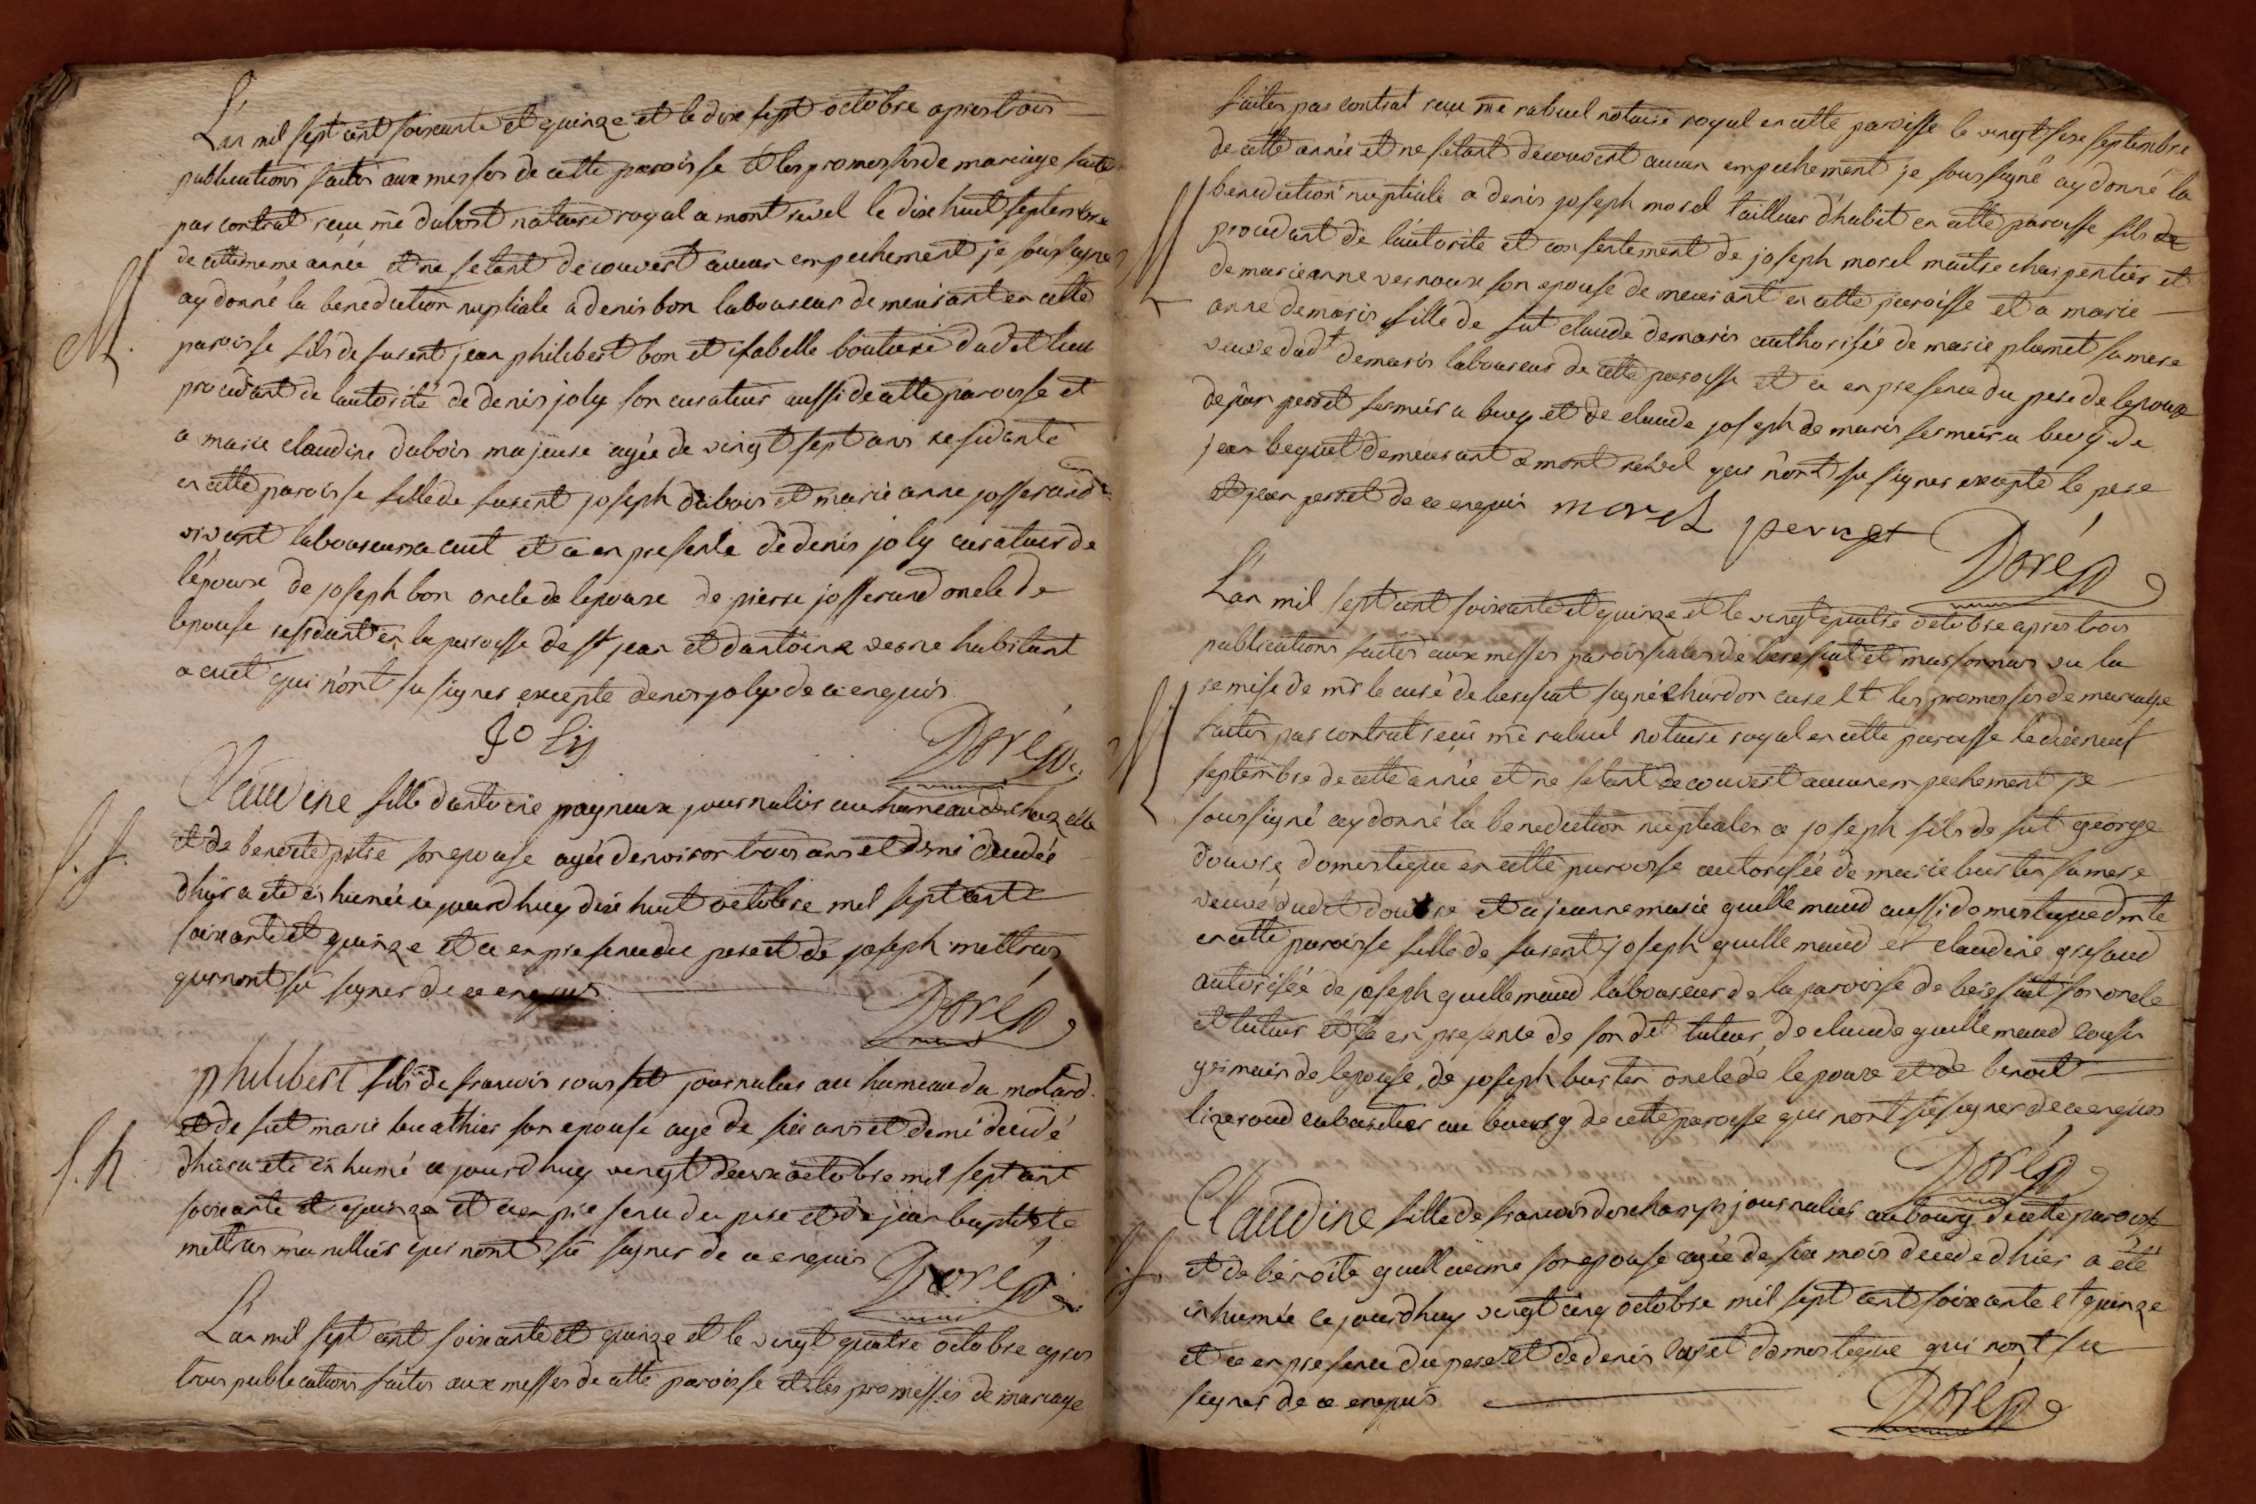 L'an mil sept cent soixante et quinze et le dix sept octobre apres trois
publications faites aux messes de cette paroisse et les promesses de mariage faite
par contrat recu me dubost notaire royal a mont revel le dix huit septembre
de cette meme année et ne setant decouvert aucun empechement je soussigné
M. ay donné la benediction nuptiale a denis bon laboureur demeurant en cette
paroisse fils de furent jean philibert bon et isabelle bouture dud et lieu
procedant de lautorité de denis joly son curateur aussi de cette paroisse et
a marie claudine dubois majeure agée de vingt sept ans residante
en cette paroisse fille de furent joseph dubois et marie anne josserand
vivant laboureurs a cuet et ce en presence de denis joly curateur de
l'epoux de joseph bon oncle de lepoux de pierre josserand oncle de
lepouse residant en la paroisse de st jean et dantoine verne habitant
a cuet qui n'ont su signer excepté denis joly de ce enquis
Jo ly
Doré
Claudine fille dantoine pagneux journalier au hameau de chez
s.f. et de benoite pitre son epouse agée denviron trois ans et demi decedée
dhyer a eté inhumée ce jourdhuy dix huit octobre mil sept cent
soixante et quinze et ce en presence du pere et de joseph mettras
qui nont su signer de ce enquis
Doré
philibert fils de francois rousset journalier au hameau du molard
et de fut marie buathier son epouse agé de six ans et demi decedé
s.h. dhier a eté inhumé ce jourdhuy vingt deux octobre mil sept cent
soixante et quinze et ce en presence du pere et de jean baptiste
mettras marillier qui nont su signer de ce enquis
Doré
L'an mil sept cent soixante et quinze et le vingt quatre octobre apres
trois publications faites aux messes de cette paroisse et les promesses de mariage
faites par contrat recu me rabuel notaire royal en cette paroisse le vingt six septembre
de cette année et ne setant decouvert aucun empechement je soussigné ay donné la
M benediction nuptiale a denis joseph morel tailleur d'habit en cette paroisse fils de
procedant de l'autorité et consentement de joseph morel maitre charpentier et
de marie anne vernoux son epouse demeurant en cette paroisse et a marie
anne demaris fille de fut claude demaris authorisée de marie plumet sa mere
veuve dudt demaris laboureur de cette paroisse et ce en presence du pere de lepoux
de jean perret fermier a bucy et de claude joseph demaris fermier a bucy de
jean bequet demeurant a mont revel qui n'ont su signer excepté le pere
et jean perret de ce enquis morel perret
Doré
L'an mil sept cent soixante et quinze et le vingt quatre octobre apres trois
publications faites aux messes paroissiales de beresiat et marsonnas vu la
remise de mr le curé de beresiat signé chardon curé et les promesses de mariage
M faites par contrat recu me rabuel notaire royal en cette paroisse le dix neuf
septembre de cette année et ne setant decouvert aucun empechement je
soussigné ay donné la benediction nuptiales a joseph fils de fut george
douvre domestique en cette paroisse autorisée de marie burtin sa mere
veuve dudt douvre et a jeanne marie guillemaud aussi domestique dmte
en cette paroisse fille de furent joseph guillemaud et claudine gresaud
autorisée de joseph guillemaud laboureur de la paroisse de beresiat son oncle
et tuteur et ce en presence de son dit tuteur de claude guillemaud cousin
germain de lepouse, de joseph burtin oncle de lepoux et de benoit
lizeroud cabaretier au bourg de cette paroisse qui nont su signer de ce enquis
Doré
Claudine fille de francois deschamps journalier au bourg de cette paroisse
s.f. et de benoite guillaume son epouse agée de six mois decedé dhier a été
inhumée ce jourdhuy vingt cinq octobre mil sept cent soixante et quinze
et ce en presence du pere et de denis domestique qui nont su
signer de ce enquis
Doré